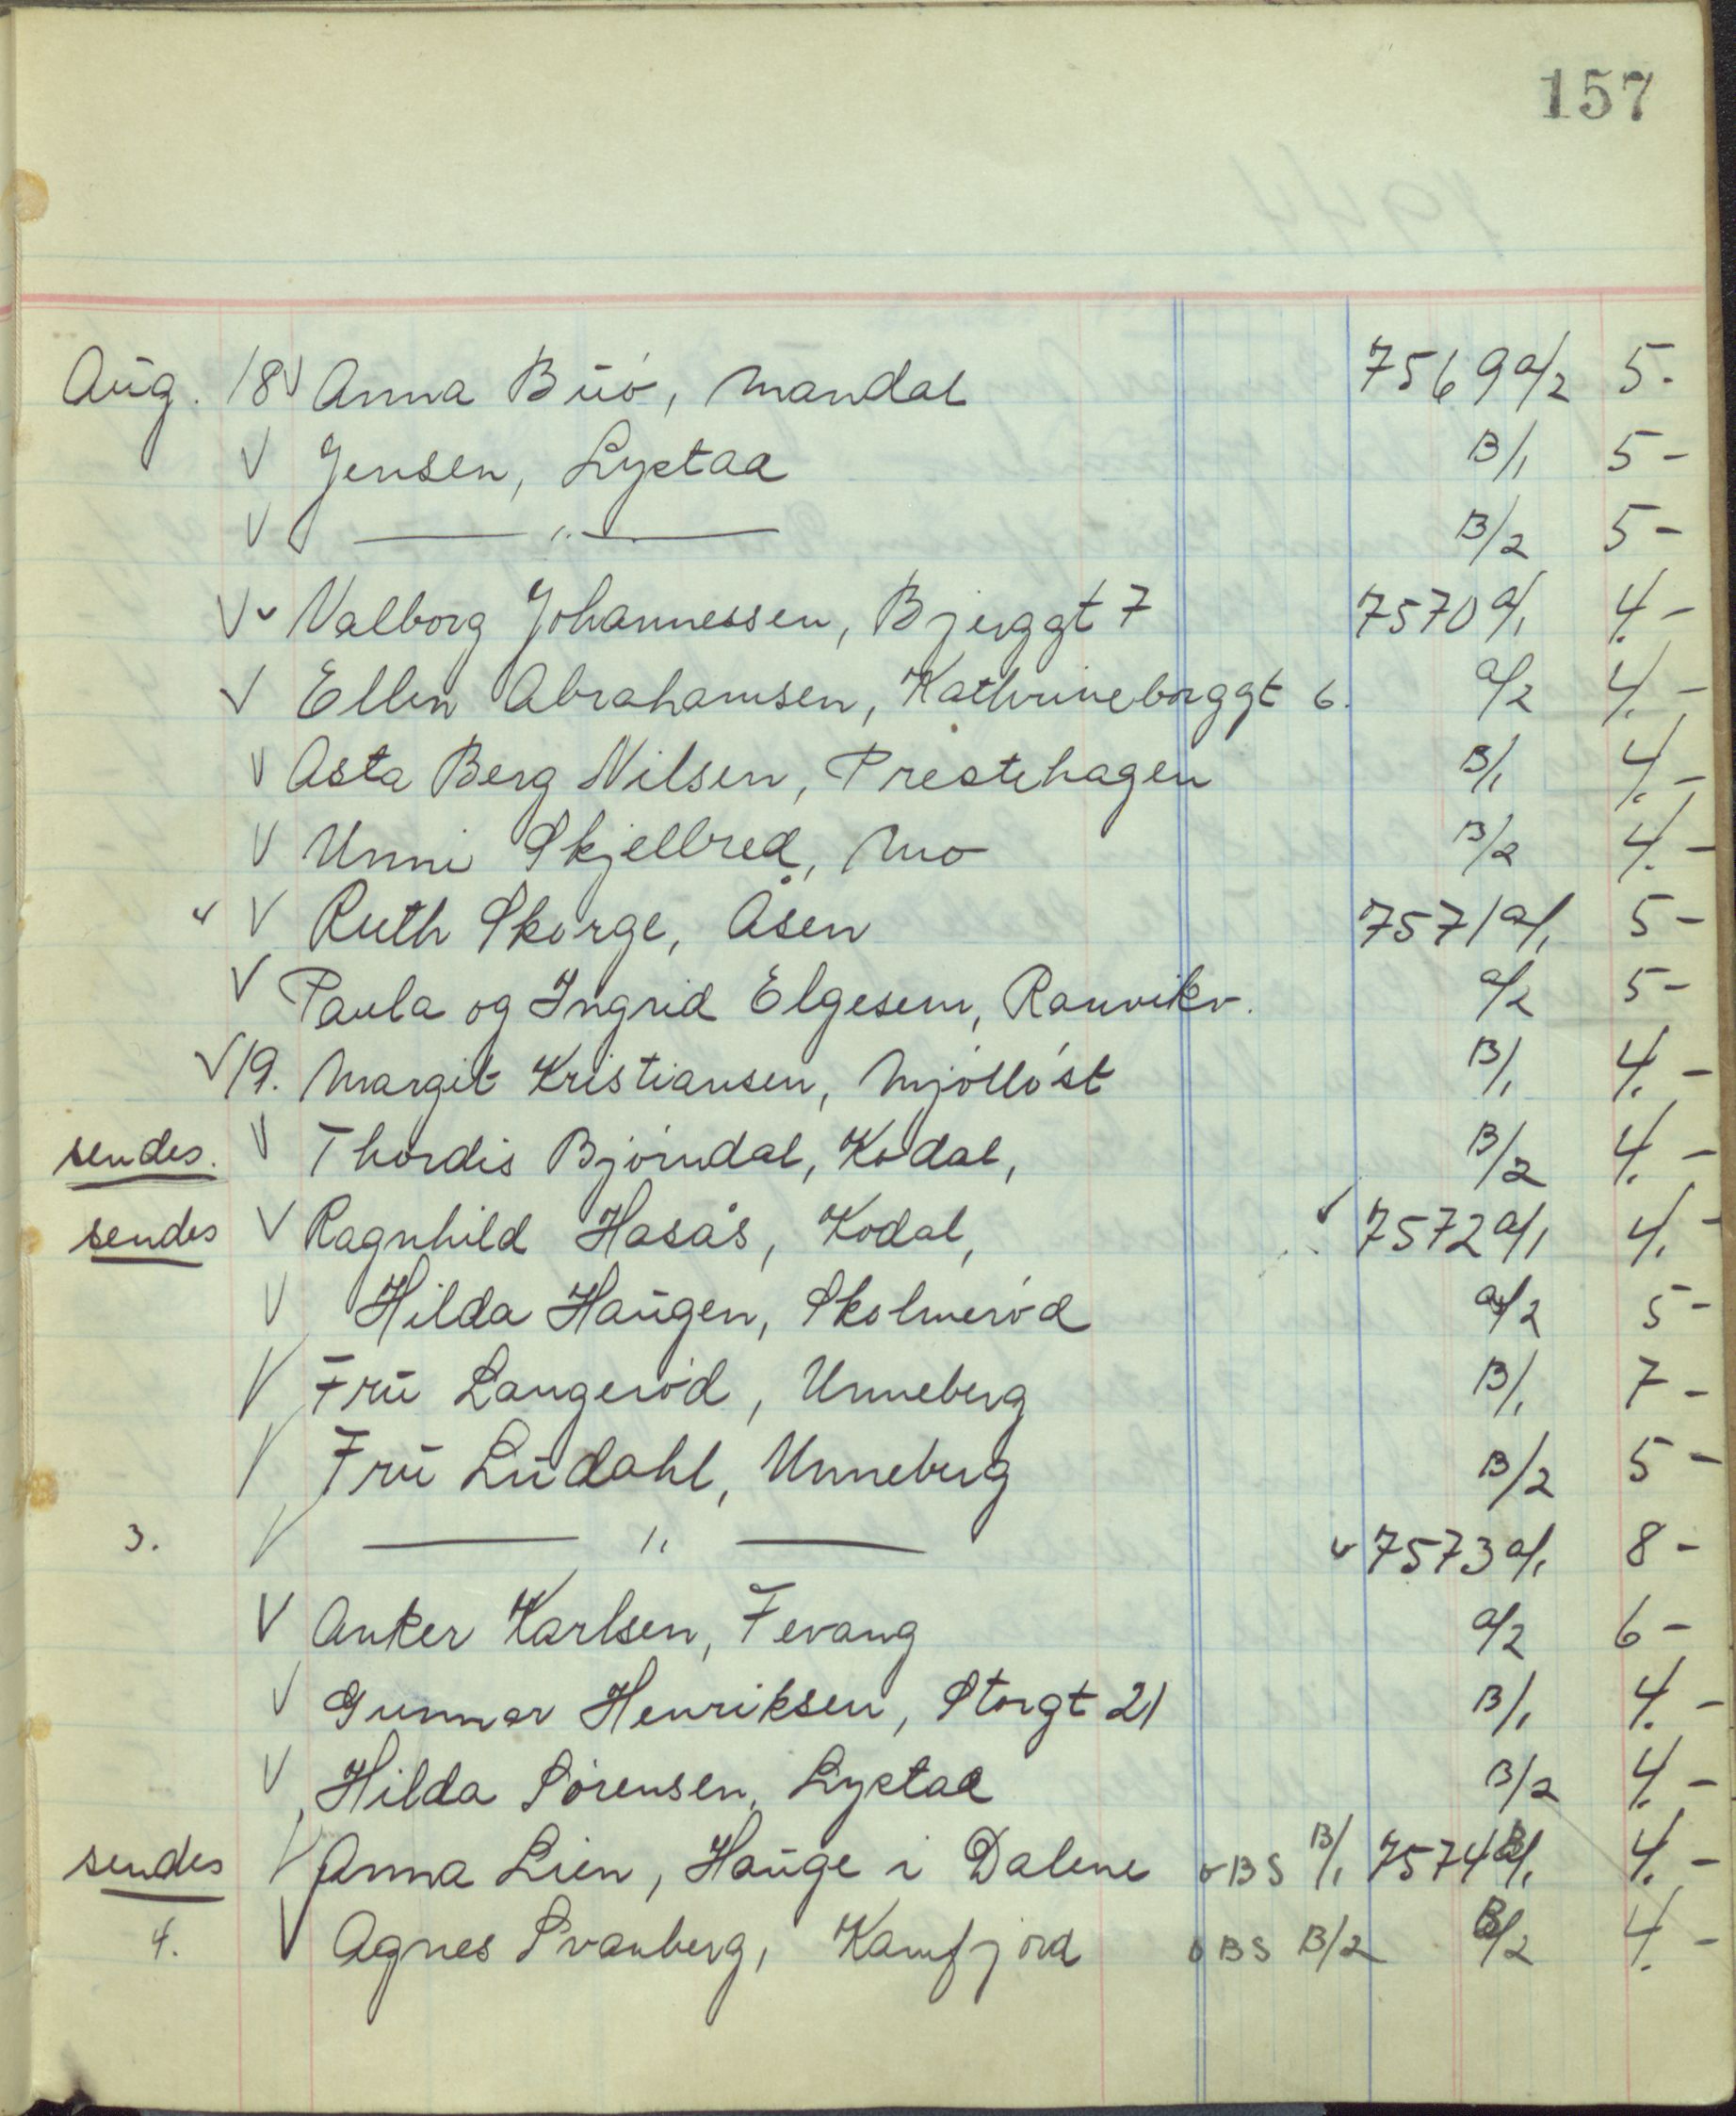 157
Aug. 18 V Anna Buø, Mandal 7569 a/2 5.
V Jensen, Lystad B/1 5 -
V — " — B/2 5 -
V v Valborg Johannessen, Bjerggt 7 7570 a/1 4. -
V Ellen Abrahamsen, Kathrineborggt 6. a/2 4. -
V Asta Berg Nilsen, Prestehagen B/1 4. -
V Unni Skjelbred, Mo B/2 4. -
v V Ruth Skorge, Åsen 7571 a/1 5 -
V Paula og Ingrid Elgesem, Ranvikv. a/2 5 -
V 19. Margit Kristiansen, Mjølløst B/1 4. -
sendes. V Thordis Bjørndal, Kodal, B/2 4. -
sendes V Ragnhild Hasås, Kodal, v 7572 a/1 4. -
V Hilda Haugen, Skolmerød a/2 5 -
V Fru Langerød, Unneberg B/1 7 -
V Fru Lidahl, Unneberg B/2 5 -
3. V — " — v 7573 a/1 8 -
V Anker Karlsen, Fevang a/2 6 -
V Gunnar Henriksen, Storgt 21 B/1 4. -
V Hilda Sørensen, Lystad B/2 4. -
sendes V Anna Lien, Hauge i Dalene OBS B/1 7574 B/1 4. -
4. V Agnes Svanberg, Kamfjord OBS B/2 B/2 4. -